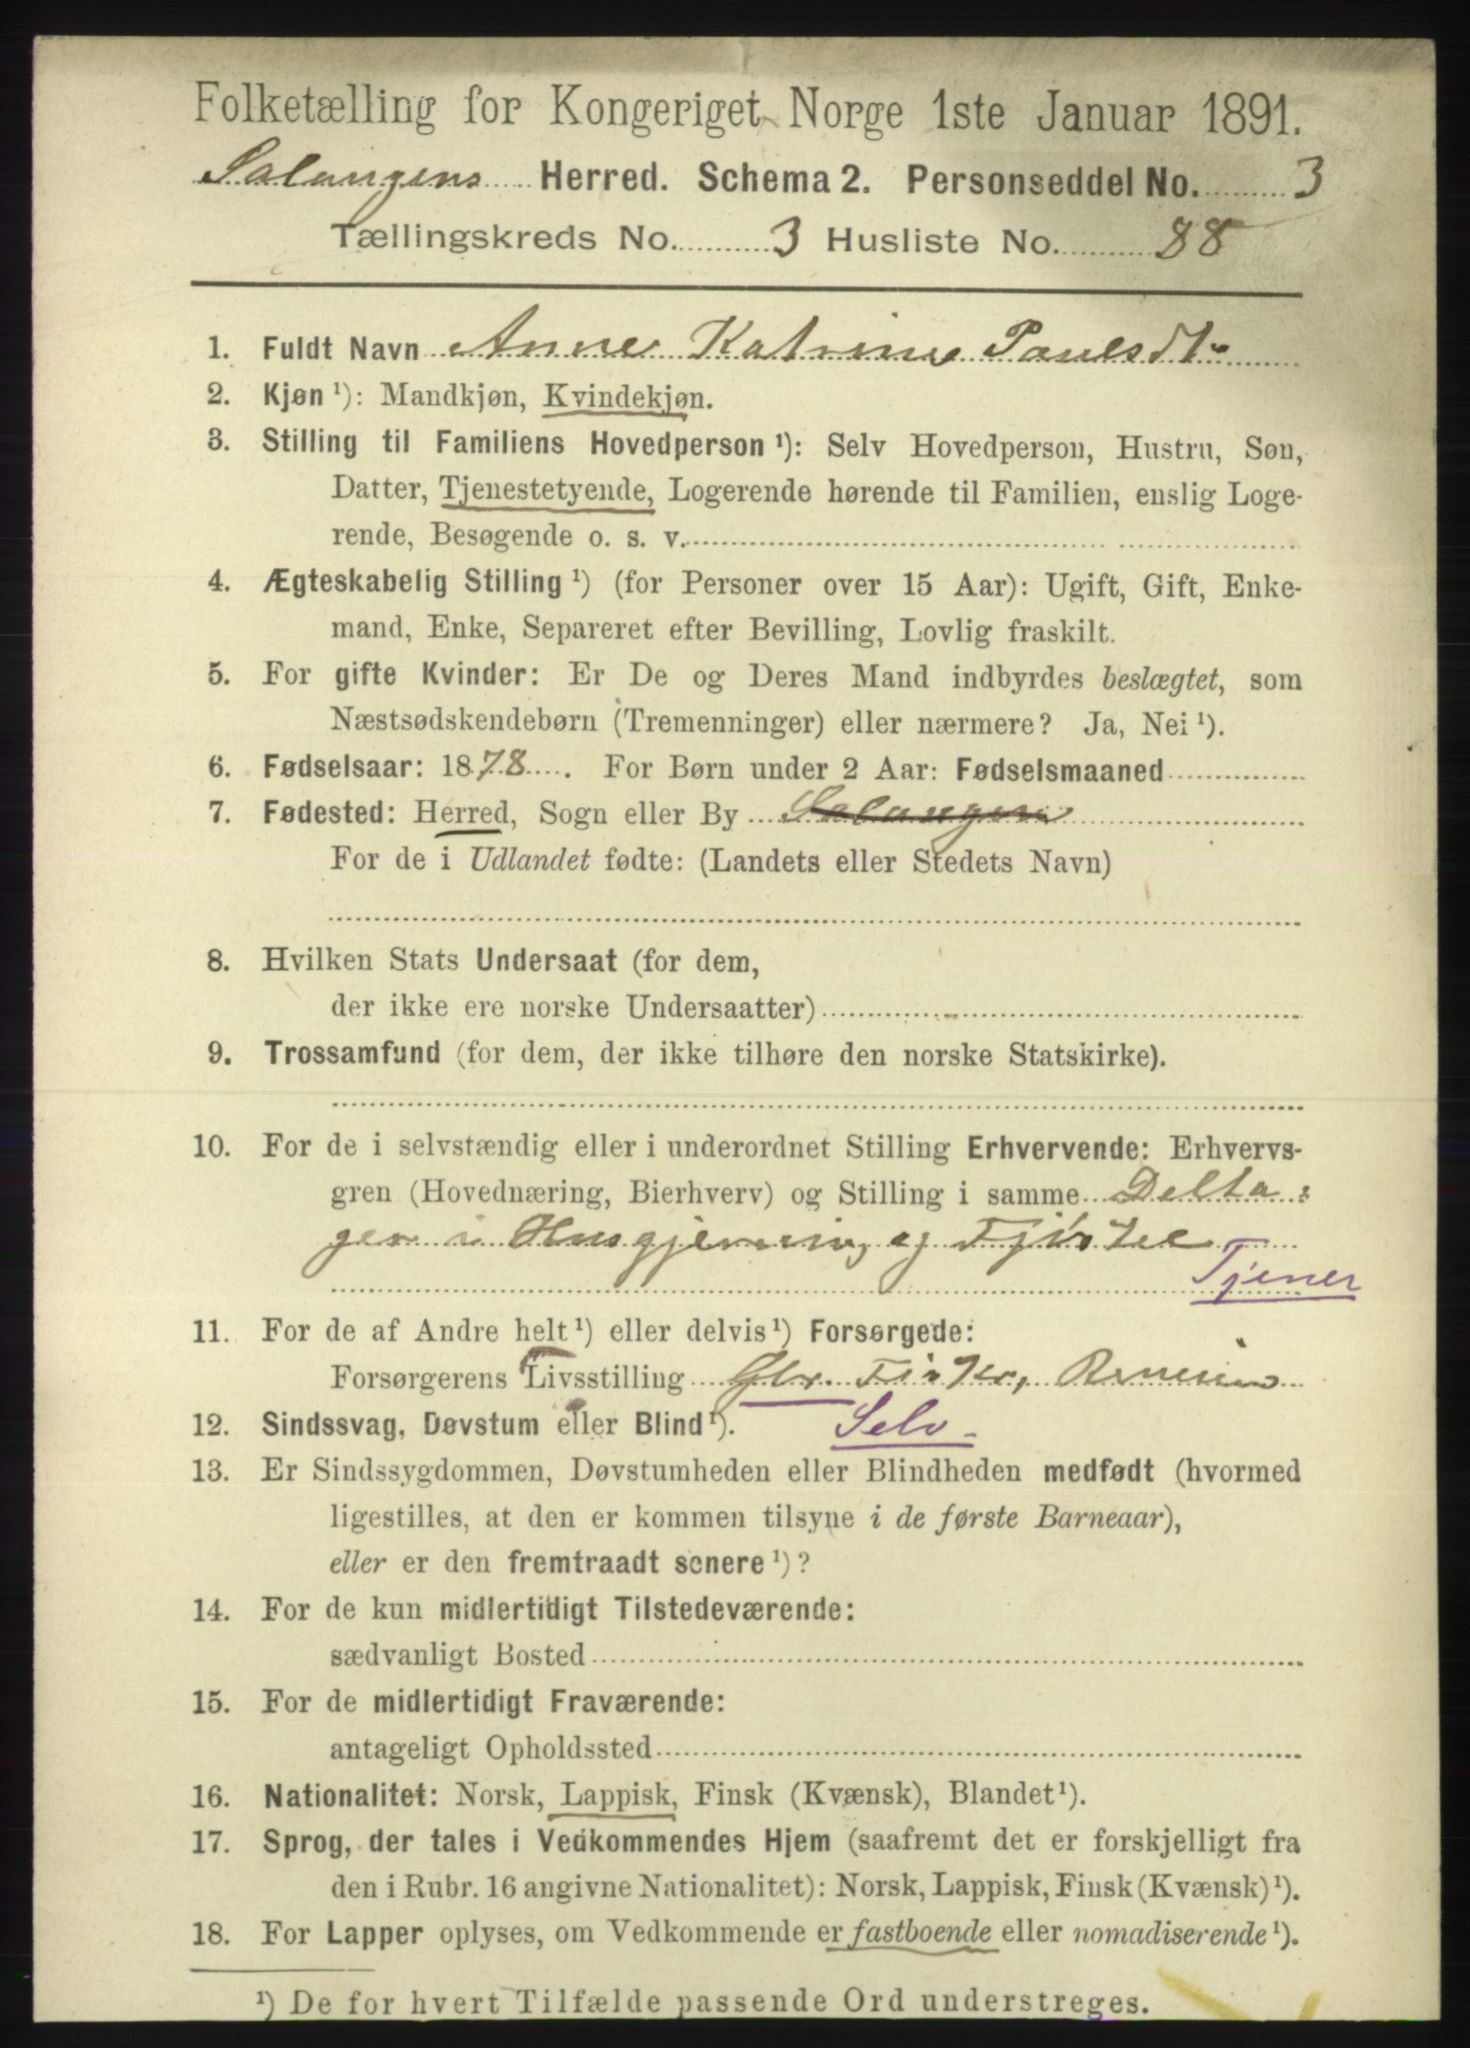 Folketælling for Kongeriget Norge 1ste Januar 1891.
Salangens Herred. Schema 2. Personseddel No. 3
Tællingskreds No. 3 Husliste No. 88
1. Fuldt Navn Anne Katrine Paulsdt.
2. Kjøn ¹): Mandkjøn, Kvindekjøn.
3. Stilling til Familiens Hovedperson ¹): Selv Hovedperson, Hustru, Søn,
Datter, Tjenestetyende, Logerende hørende til Familien, enslig Loge-
rende, Besøgende o. s. v.
4. Ægteskabelig Stilling ¹) (for Personer over 15 Aar): Ugift, Gift, Enke-
mand, Enke, Separeret efter Bevilling, Lovlig fraskilt.
5. For gifte Kvinder: Er De og Deres Mand indbyrdes beslægtet, som
Næstsødskendebørn (Tremenninger) eller nærmere? Ja, Nei ¹).
6. Fødselsaar: 1878. For Børn under 2 Aar: Fødselsmaaned
7. Fødested: Herred, Sogn eller By Salangen
For de i Udlandet fødte: (Landets eller Stedets Navn)
8. Hvilken Stats Undersaat (for dem,
der ikke ere norske Undersaatter)
9. Trossamfund (for dem, der ikke tilhøre den norske Statskirke).
10. For de i selvstændig eller i underordnet Stilling Erhvervende: Erhvervs-
gren (Hovednæring, Bierhverv) og Stilling i samme Delta:
ger i Husgjerning og Fjøstel
Tjener
11. For de af Andre helt ¹) eller delvis ¹) Forsørgede:
Forsørgerens Livsstilling Gbr. Fisker,
12. Sindssvag, Døvstum eller Blind ¹). Selv
13. Er Sindssygdommen, Døvstumheden eller Blindheden medfødt (hvormed
ligestilles, at den er kommen tilsyne i de første Barneaar),
eller er den fremtraadt senere ¹)?
14. For de kun midlertidigt Tilstedeværende:
sædvanligt Bosted
15. For de midlertidigt Fraværende:
antageligt Opholdssted
16. Nationalitet: Norsk, Lappisk, Finsk (Kvænsk), Blandet ¹).
17. Sprog, der tales i Vedkommendes Hjem (saafremt det er forskjelligt fra
den i Rubr. 16 angivne Nationalitet): Norsk, Lappisk, Finsk (Kvænsk) ¹).
18. For Lapper oplyses, om Vedkommende er fastboende eller nomadiserende ¹).
¹) De for hvert Tilfælde passende Ord understreges.